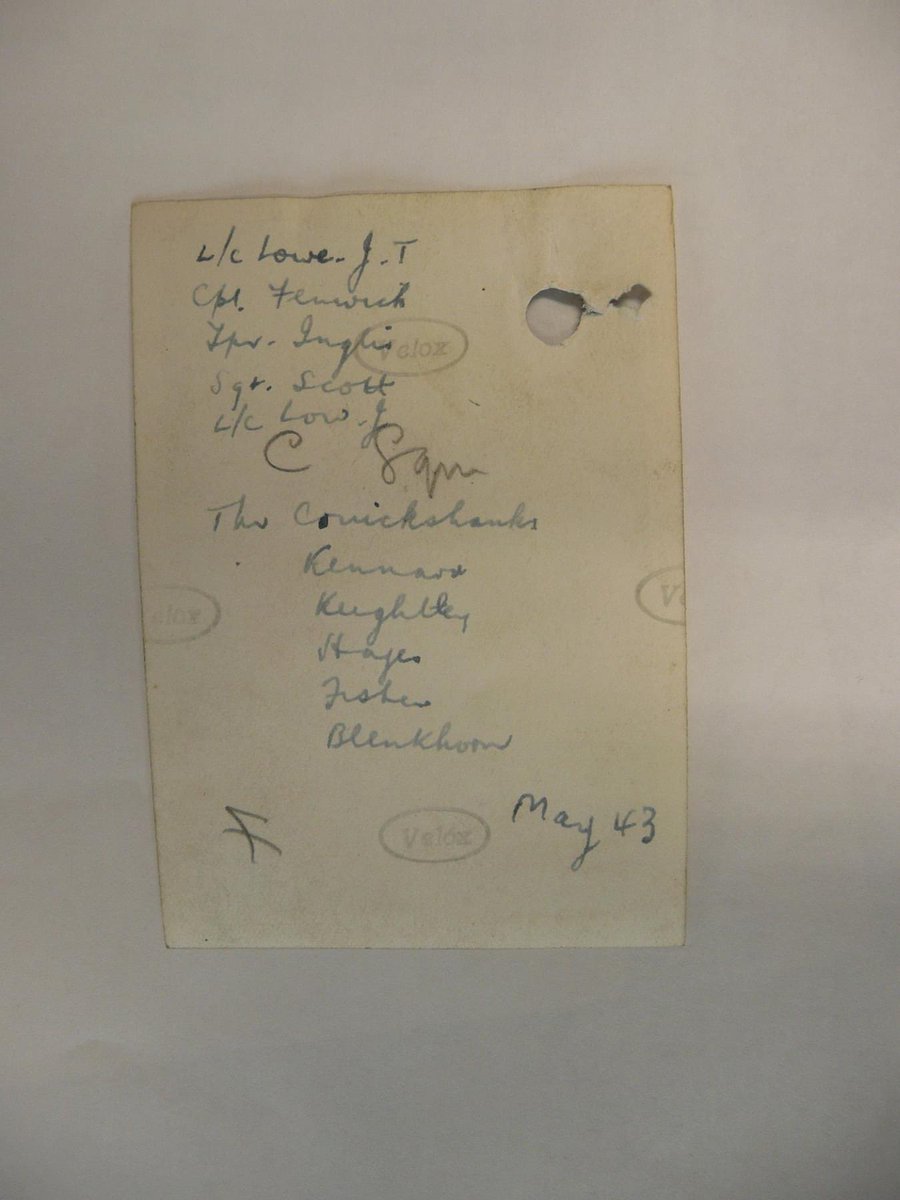 L/c Lowe. J. T
Cpl. Fenwick
Tpr. Inglis
Velox
Sgt. Scott
L/c Low. J
C Sqn
Thr Cruickshanks
Kennard
Velox
Keightley
Hayes
Fisher
Blenkhorn
May 43
Velox